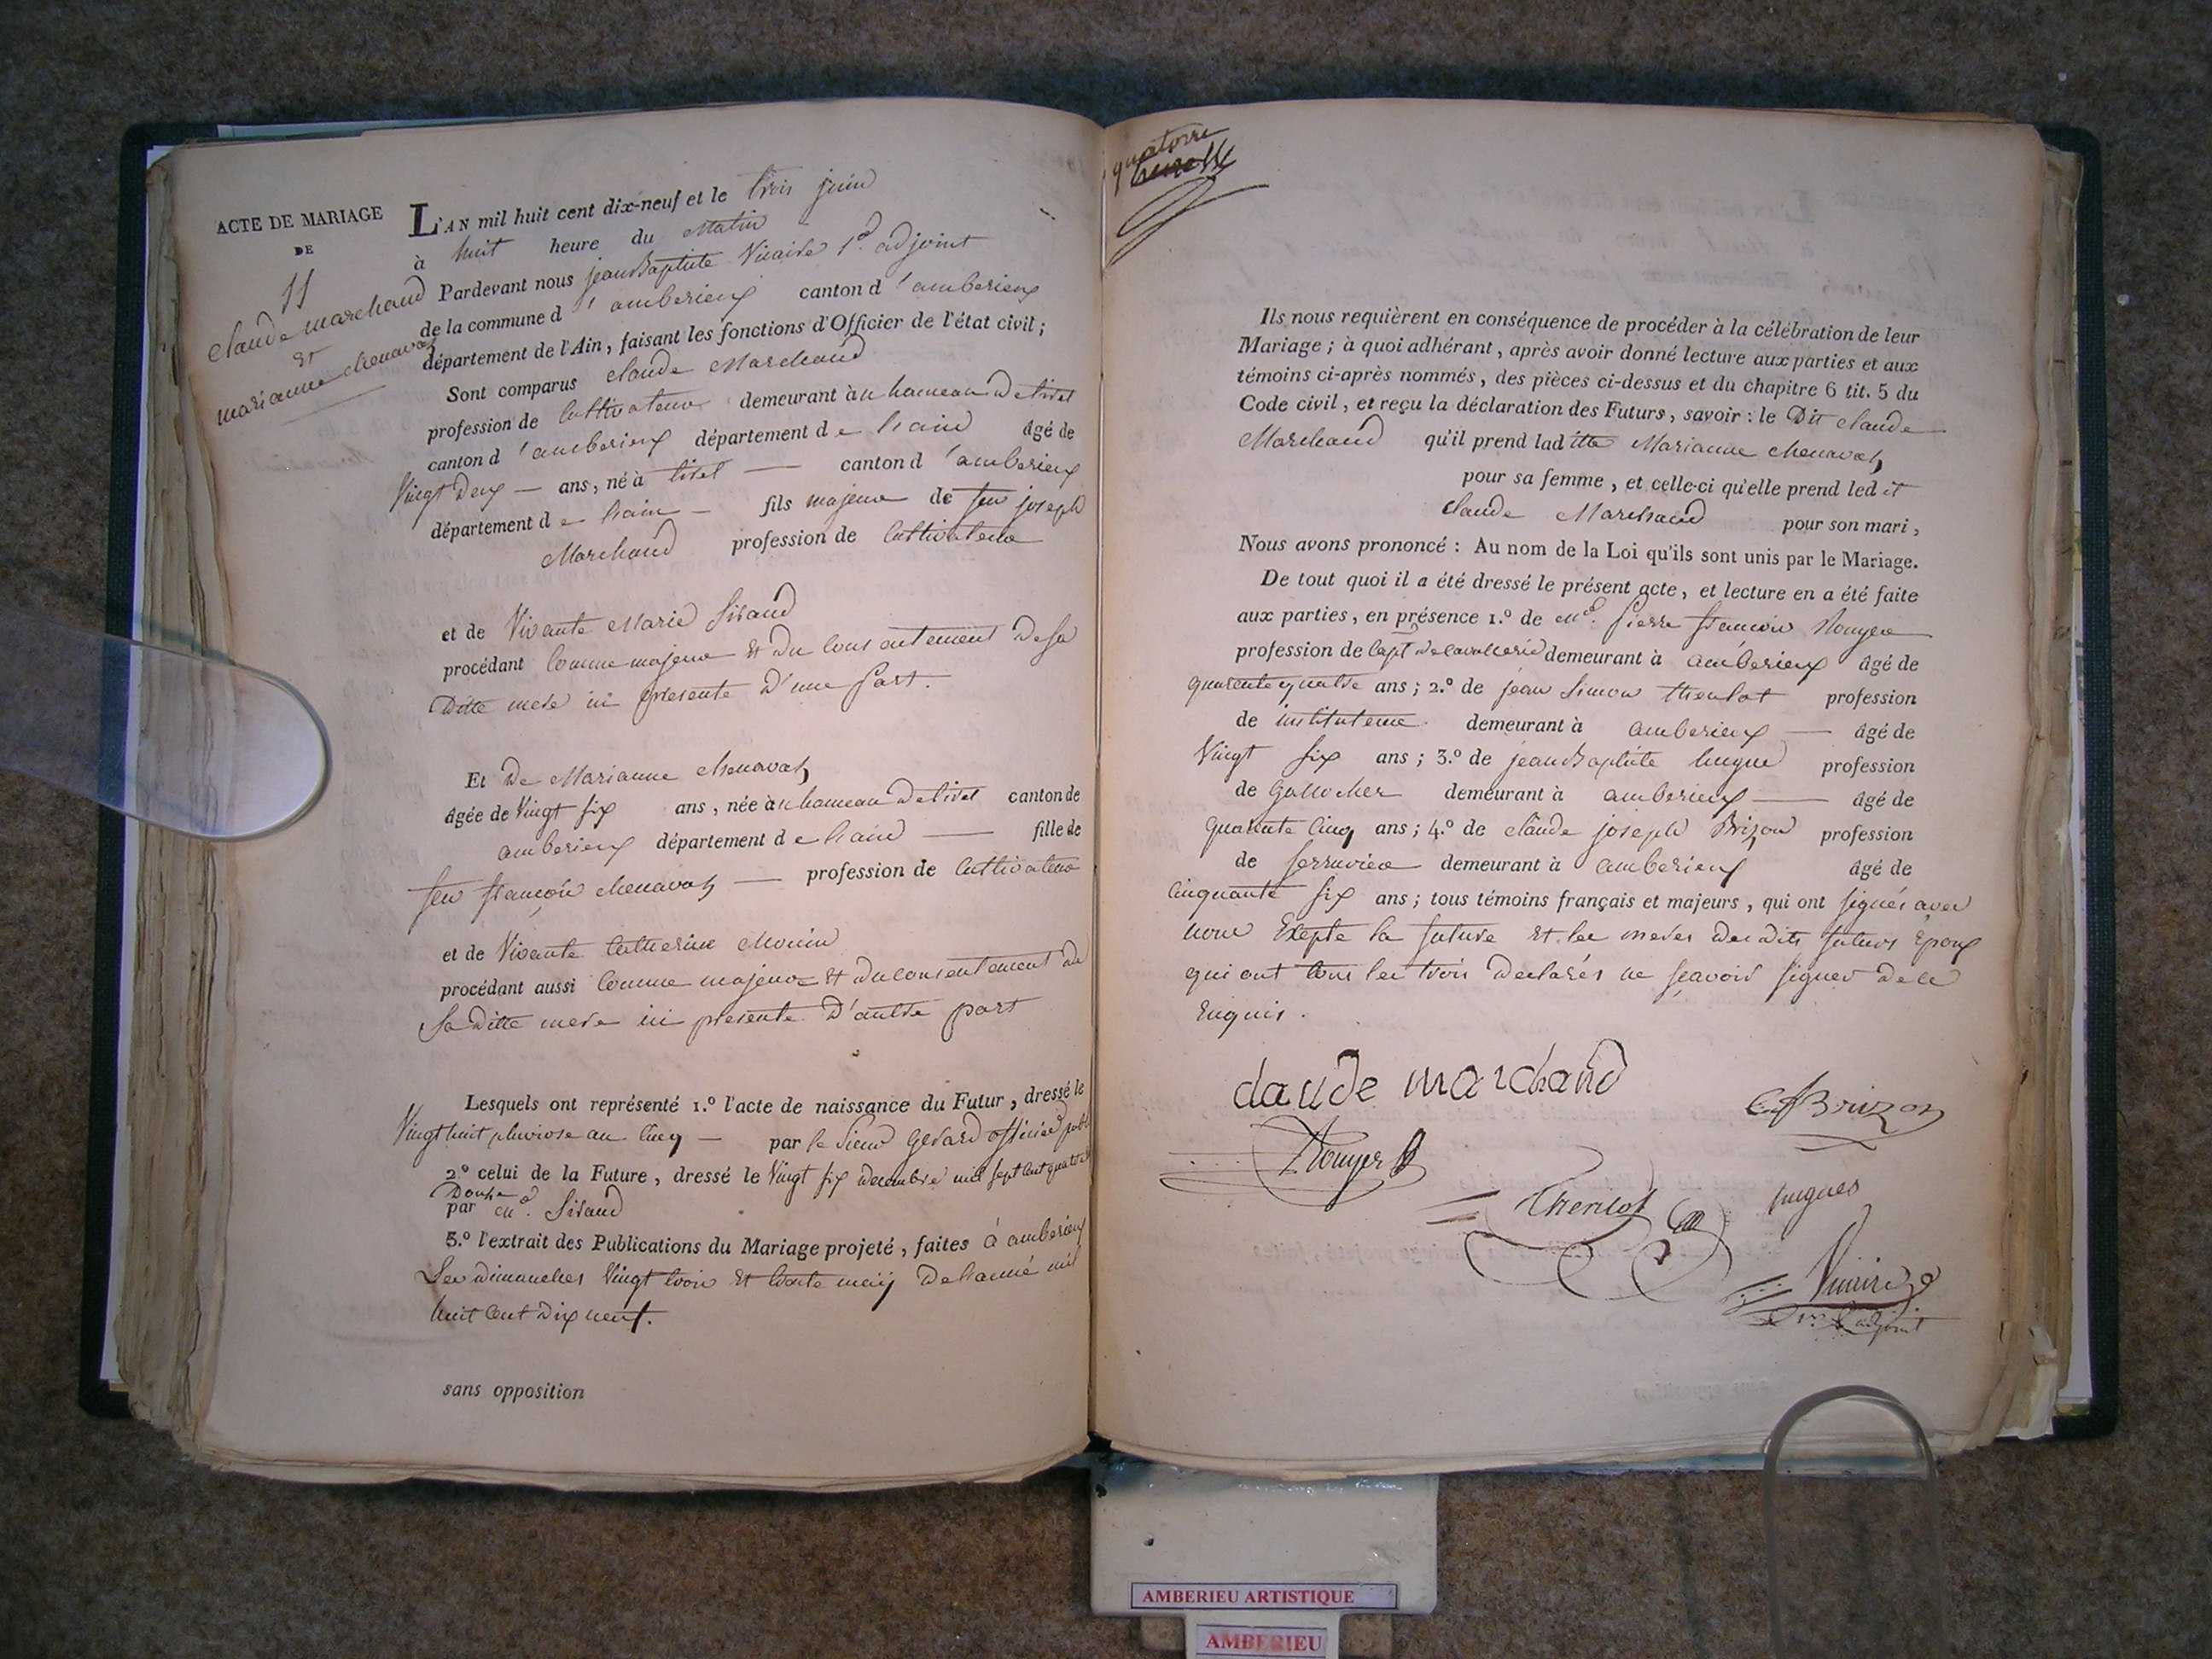 ACTE DE MARIAGE
DE
11
Claude marchand
et
marianne chenavaz
L'AN mil huit cent dix-neuf et le trois juin
à huit heure du Matin
Pardevant nous jean Baptiste Vicaire 1er adjoint
de la commune d'amberieux canton d'amberieux
département de l'Ain, faisant les fonctions d'Officier de l'état civil;
Sont comparus claude Marchand
profession de Cultivateur demeurant à u hameau de tiret
canton d'amberieux département de l'ain âgé de
Vingt Deux — ans, né à tiret — canton d'amberieux
département de l'ain — fils majeur de feu joseph
Marchand profession de Cultivateur
et de Vivante Marie Siraud
procédant Comme majeur et du consentement de sa
Ditte mere ici presente D'une part.
Et De Marianne chenavaz
âgée de Vingt six ans, née à u hameau de tiret canton de
amberieux département de l'ain — fille de
feu françois chenavaz — profession de Cultivateur
et de Vivante Catherine Monin
procédant aussi Comme majeure et du consentement de
Sa Ditte mere ici presente D'autre part
Lesquels ont représenté 1.º l'acte de naissance du Futur, dressé le
Vingt huit pluviose an Cinq — par le Sieur Gerard officier publ
2º celui de la Future, dressé le Vingt six decembre mil sept cent quatre
Douze
par Mr. Siraud
3.º l'extrait des Publications du Mariage projeté, faites à amberieux
Les dimanches Vingt trois et trente maij De l'année mil
huit Cent Dix neuf.
sans opposition
quatorze
Ils nous requièrent en conséquence de procéder à la célébration de leur
Mariage; à quoi adhérant, après avoir donné lecture aux parties et aux
témoins ci-après nommés, des pièces ci-dessus et du chapitre 6 tit. 5 du
Code civil, et reçu la déclaration des Futurs, savoir: le Dit claude
Marchand qu'il prend laditte Marianne chenavaz
pour sa femme, et celle-ci qu'elle prend ledit
claude Marchand pour son mari,
Nous avons prononcé: Au nom de la Loi qu'ils sont unis par le Mariage.
De tout quoi il a été dressé le présent acte, et lecture en a été faite
aux parties, en présence 1.º de Mr. Pierre françois Rouyer
profession de Capt de cavallerie demeurant à amberieux âgé de
quarente quatre ans; 2.º de jean Simon therilot profession
de instituteur demeurant à amberieux — âgé de
Vingt six ans; 3.º de jean Baptiste hugue profession
de Gallocher demeurant à amberieux — âgé de
quarante Cinq ans; 4.º de claude joseph Brizon profession
de serrurier demeurant à amberieux âgé de
Cinquante six ans; tous témoins français et majeurs, qui ont signés avec
nous Exepté la future et les meres des dits futurs Epoux
qui ont tous les trois declarés ne sçavoir signer de ce
Enquis.
claude marchand
Brizon
Rouyer
Therilot
hugues
Vicaire
adjoint
AMBERIEU ARTISTIQUE
AMBERIEU